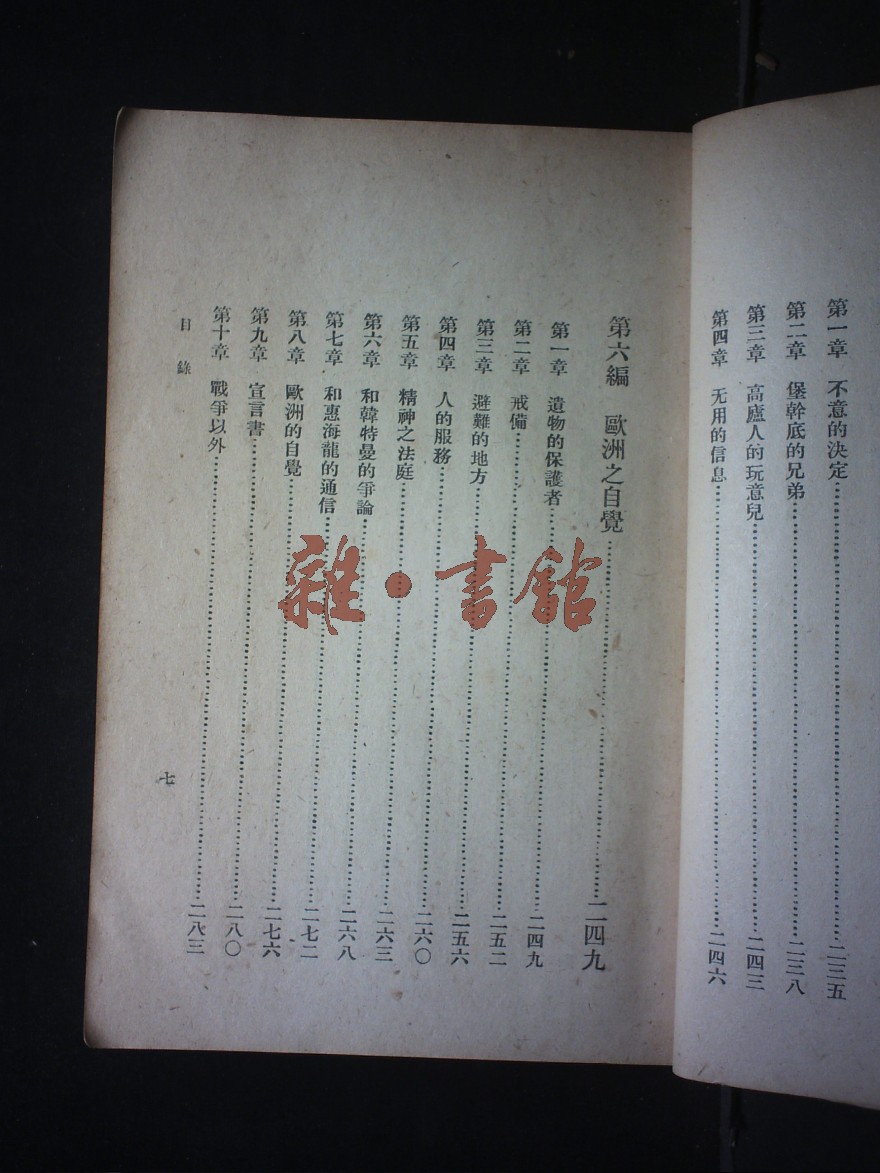 第一章 不意的決定……二三五
第二章 堡幹底的兄弟……二三八
第三章 高廬人的玩意兒……二四三
第四章 无用的信息……二四六
第六編 歐洲之自覺……二四九
第一章 遺物的保護者……二四九
第二章 戒備……二五二
第三章 避難的地方……二五六
第四章 人的服務……二六〇
第五章 精神之法庭……二六三
第六章 和韓特曼的爭論……二六八
第七章 和惠海龍的通信……二七二
第八章 歐洲的自覺……二七六
第九章 宣言書……二八〇
第十章 戰爭以外……二八三
目錄
七
雜·書館